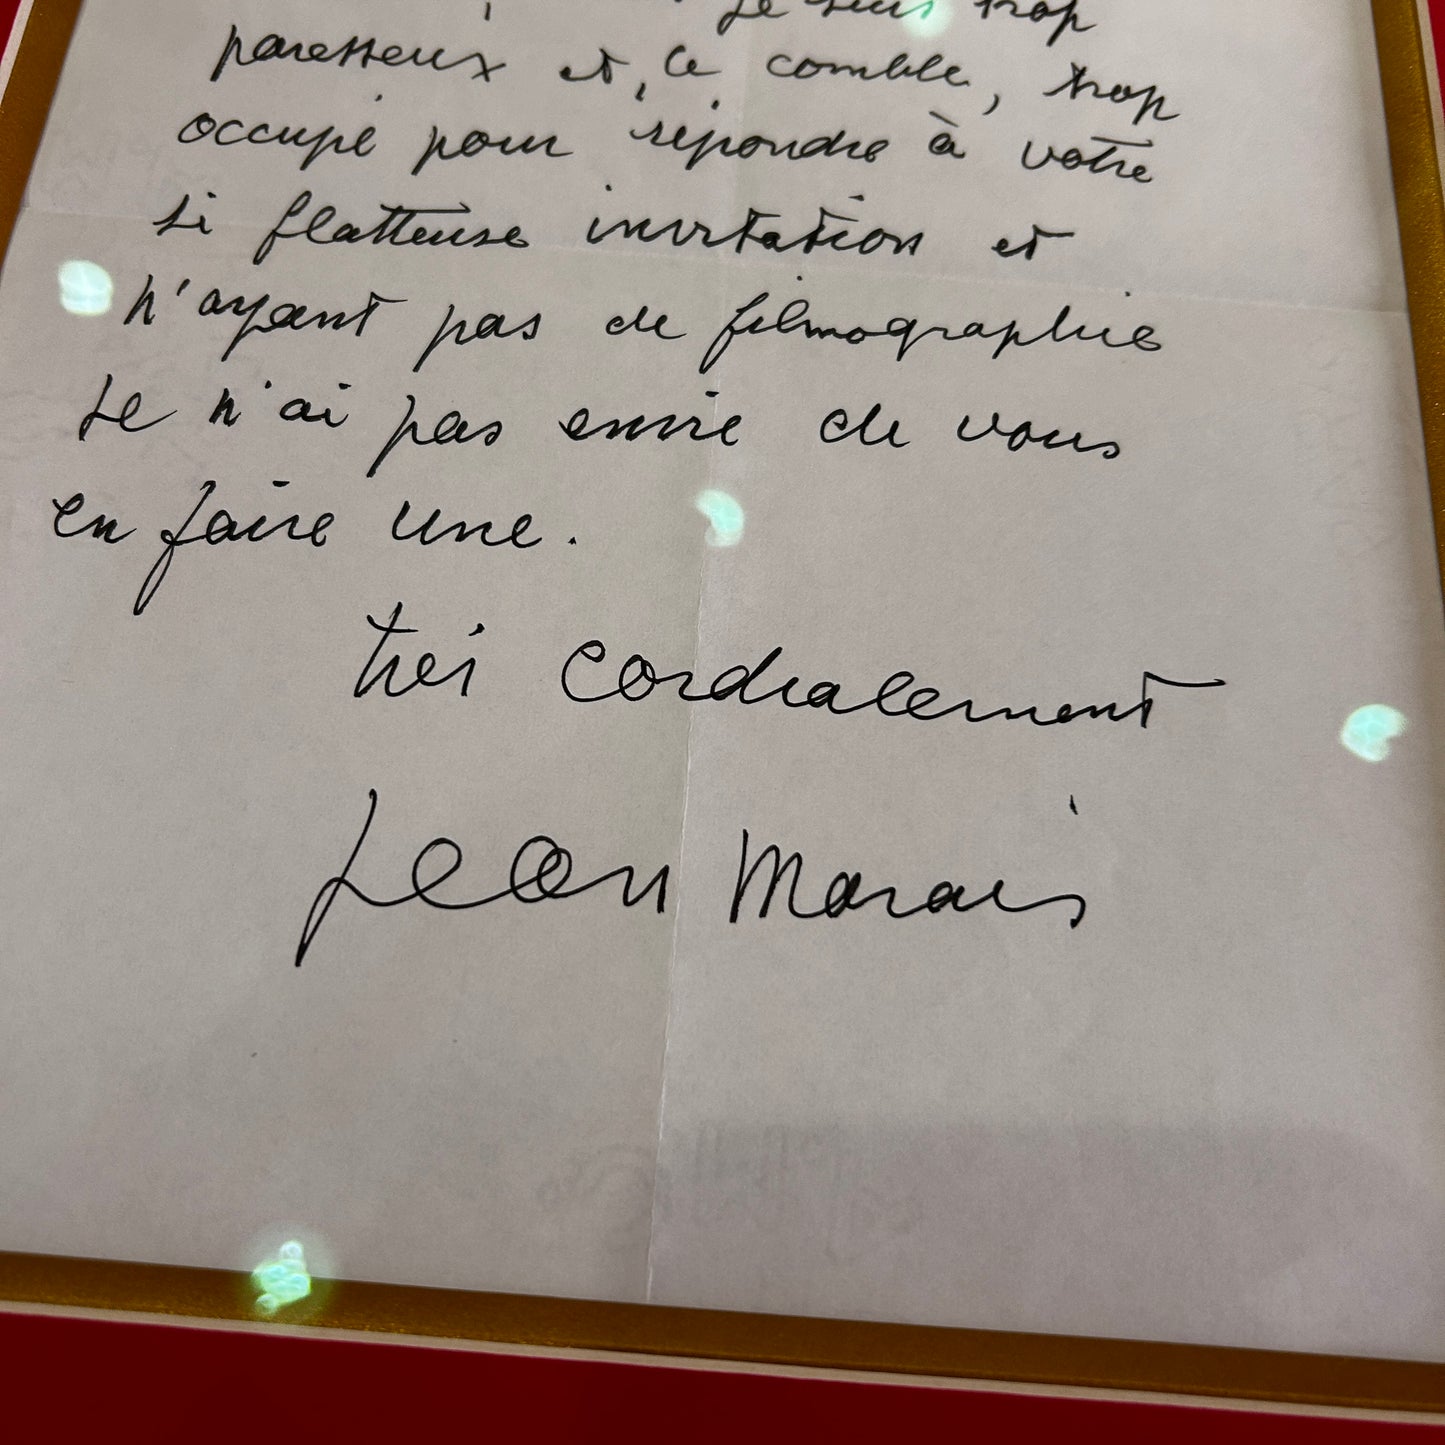 je suis trop
paresseux et, le comble, trop
occupé pour répondre à votre
si flatteuse invitation et
n'ayant pas de filmographie
je n'ai pas envie de vous
en faire une.
très cordialement
Jean Marais